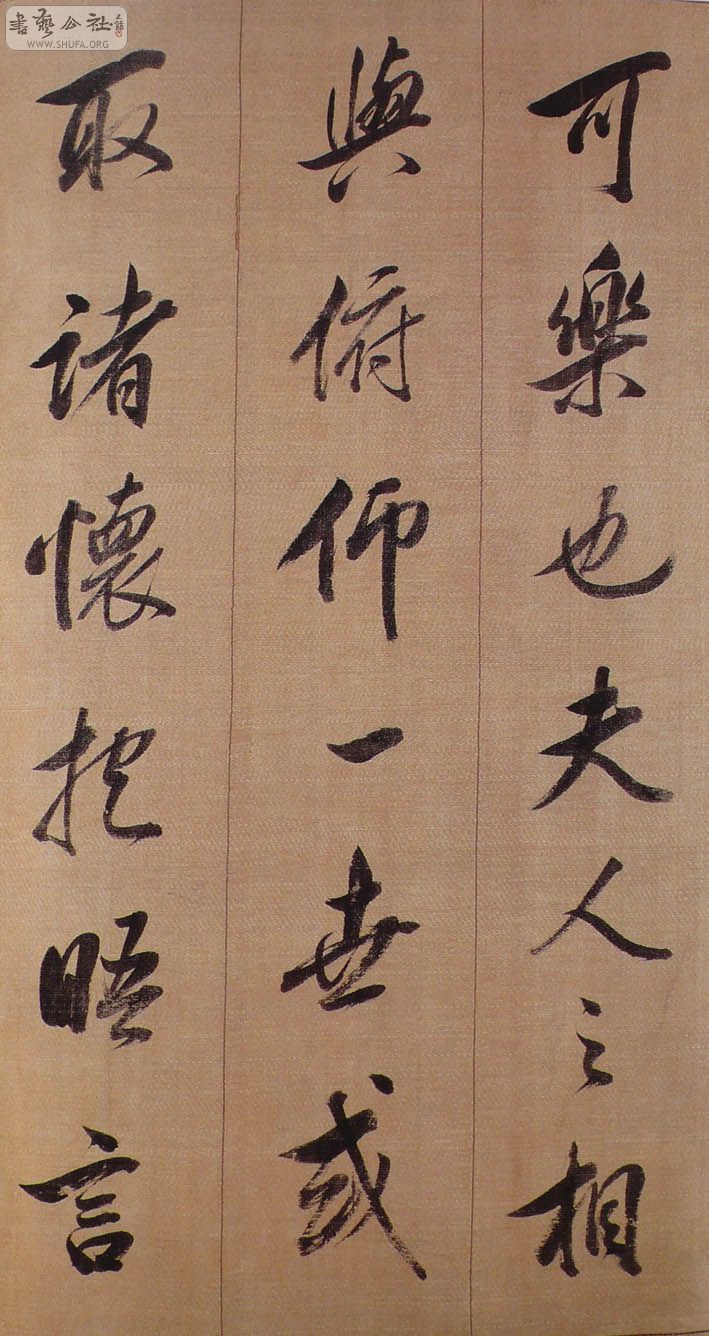 可樂也夫人之相
與俯仰一世或
取諸懷抱晤言
書藝公社
WWW.SHUFA.ORG